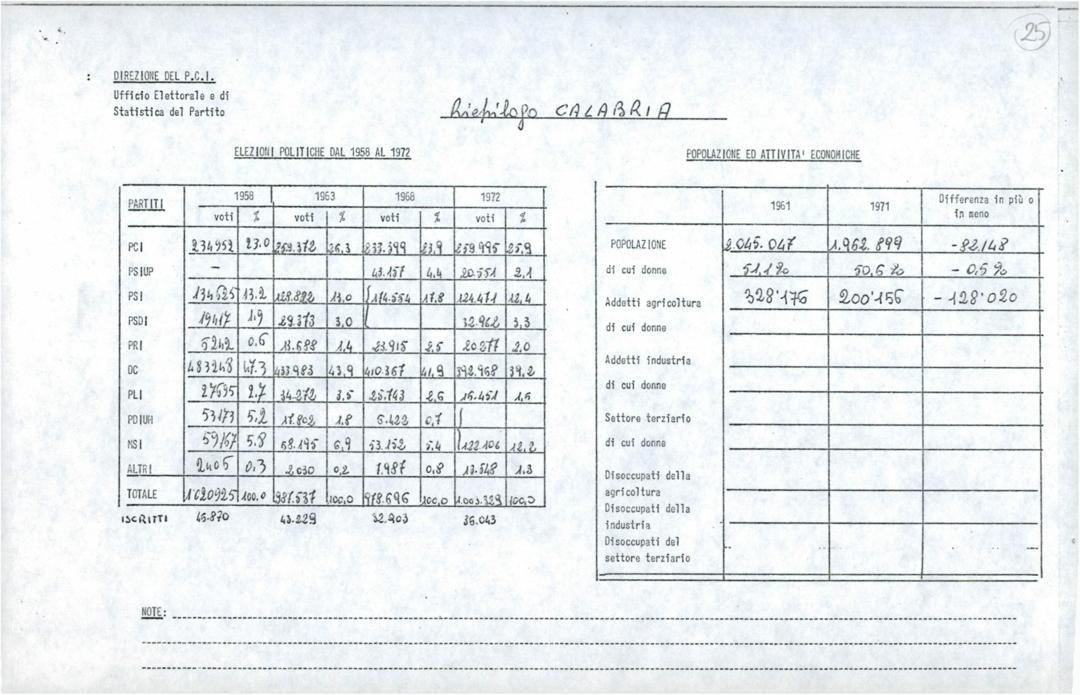 25
: DIREZIONE DEL P.C.I.
Ufficio Elettorale e di
Statistica del Partito
Riepilogo CALABRIA
ELEZIONI POLITICHE DAL 1958 AL 1972
PARTITI 1958 1963 1968 1972
voti % voti % voti % voti %
PCI 234952 23.0 259.372 26,3 233.399 23,9 259995 25,9
PSIUP — 43.157 4,4 20.551 2,1
PSI 134625 13.2 128.822 13,0 174.554 17,8 124.471 12,4
PSDI 19417 1.9 29.373 3,0 32.962 3,3
PRI 5242 0.6 13.688 1,4 23.915 2,5 20277 2,0
DC 483248 47.3 433983 43,9 410.367 41,9 392.968 39,2
PLI 27695 2.7 34.272 3,5 25.743 2,6 15.451 1,5
PDIUM 53173 5,2 17.802 1,8 6.422 0,7
NSI 59167 5.8 68.195 6,9 53.152 5,4 122.106 12,2
ALTRI 2405 0.3 2.030 0,2 7.987 0,8 13.548 1.3
TOTALE 1'020925 100.0 987.537 100,0 978.696 100,0 1.003.329 100,0
ISCRITTI 45.870 43.229 32.903 36.043
POPOLAZIONE ED ATTIVITA' ECONOMICHE
1961 1971 Differenza in più o
in meno
POPOLAZIONE 2.045.047 1.962.899 -82.148
di cui donne 51,1% 50,6% - 0.5%
Addetti agricoltura 328'176 200'156 - 128'020
di cui donne
Addetti industria
di cui donne
Settore terziario
di cui donne
Disoccupati della
agricoltura
Disoccupati della
industria
Disoccupati del
settore terziario
NOTE: